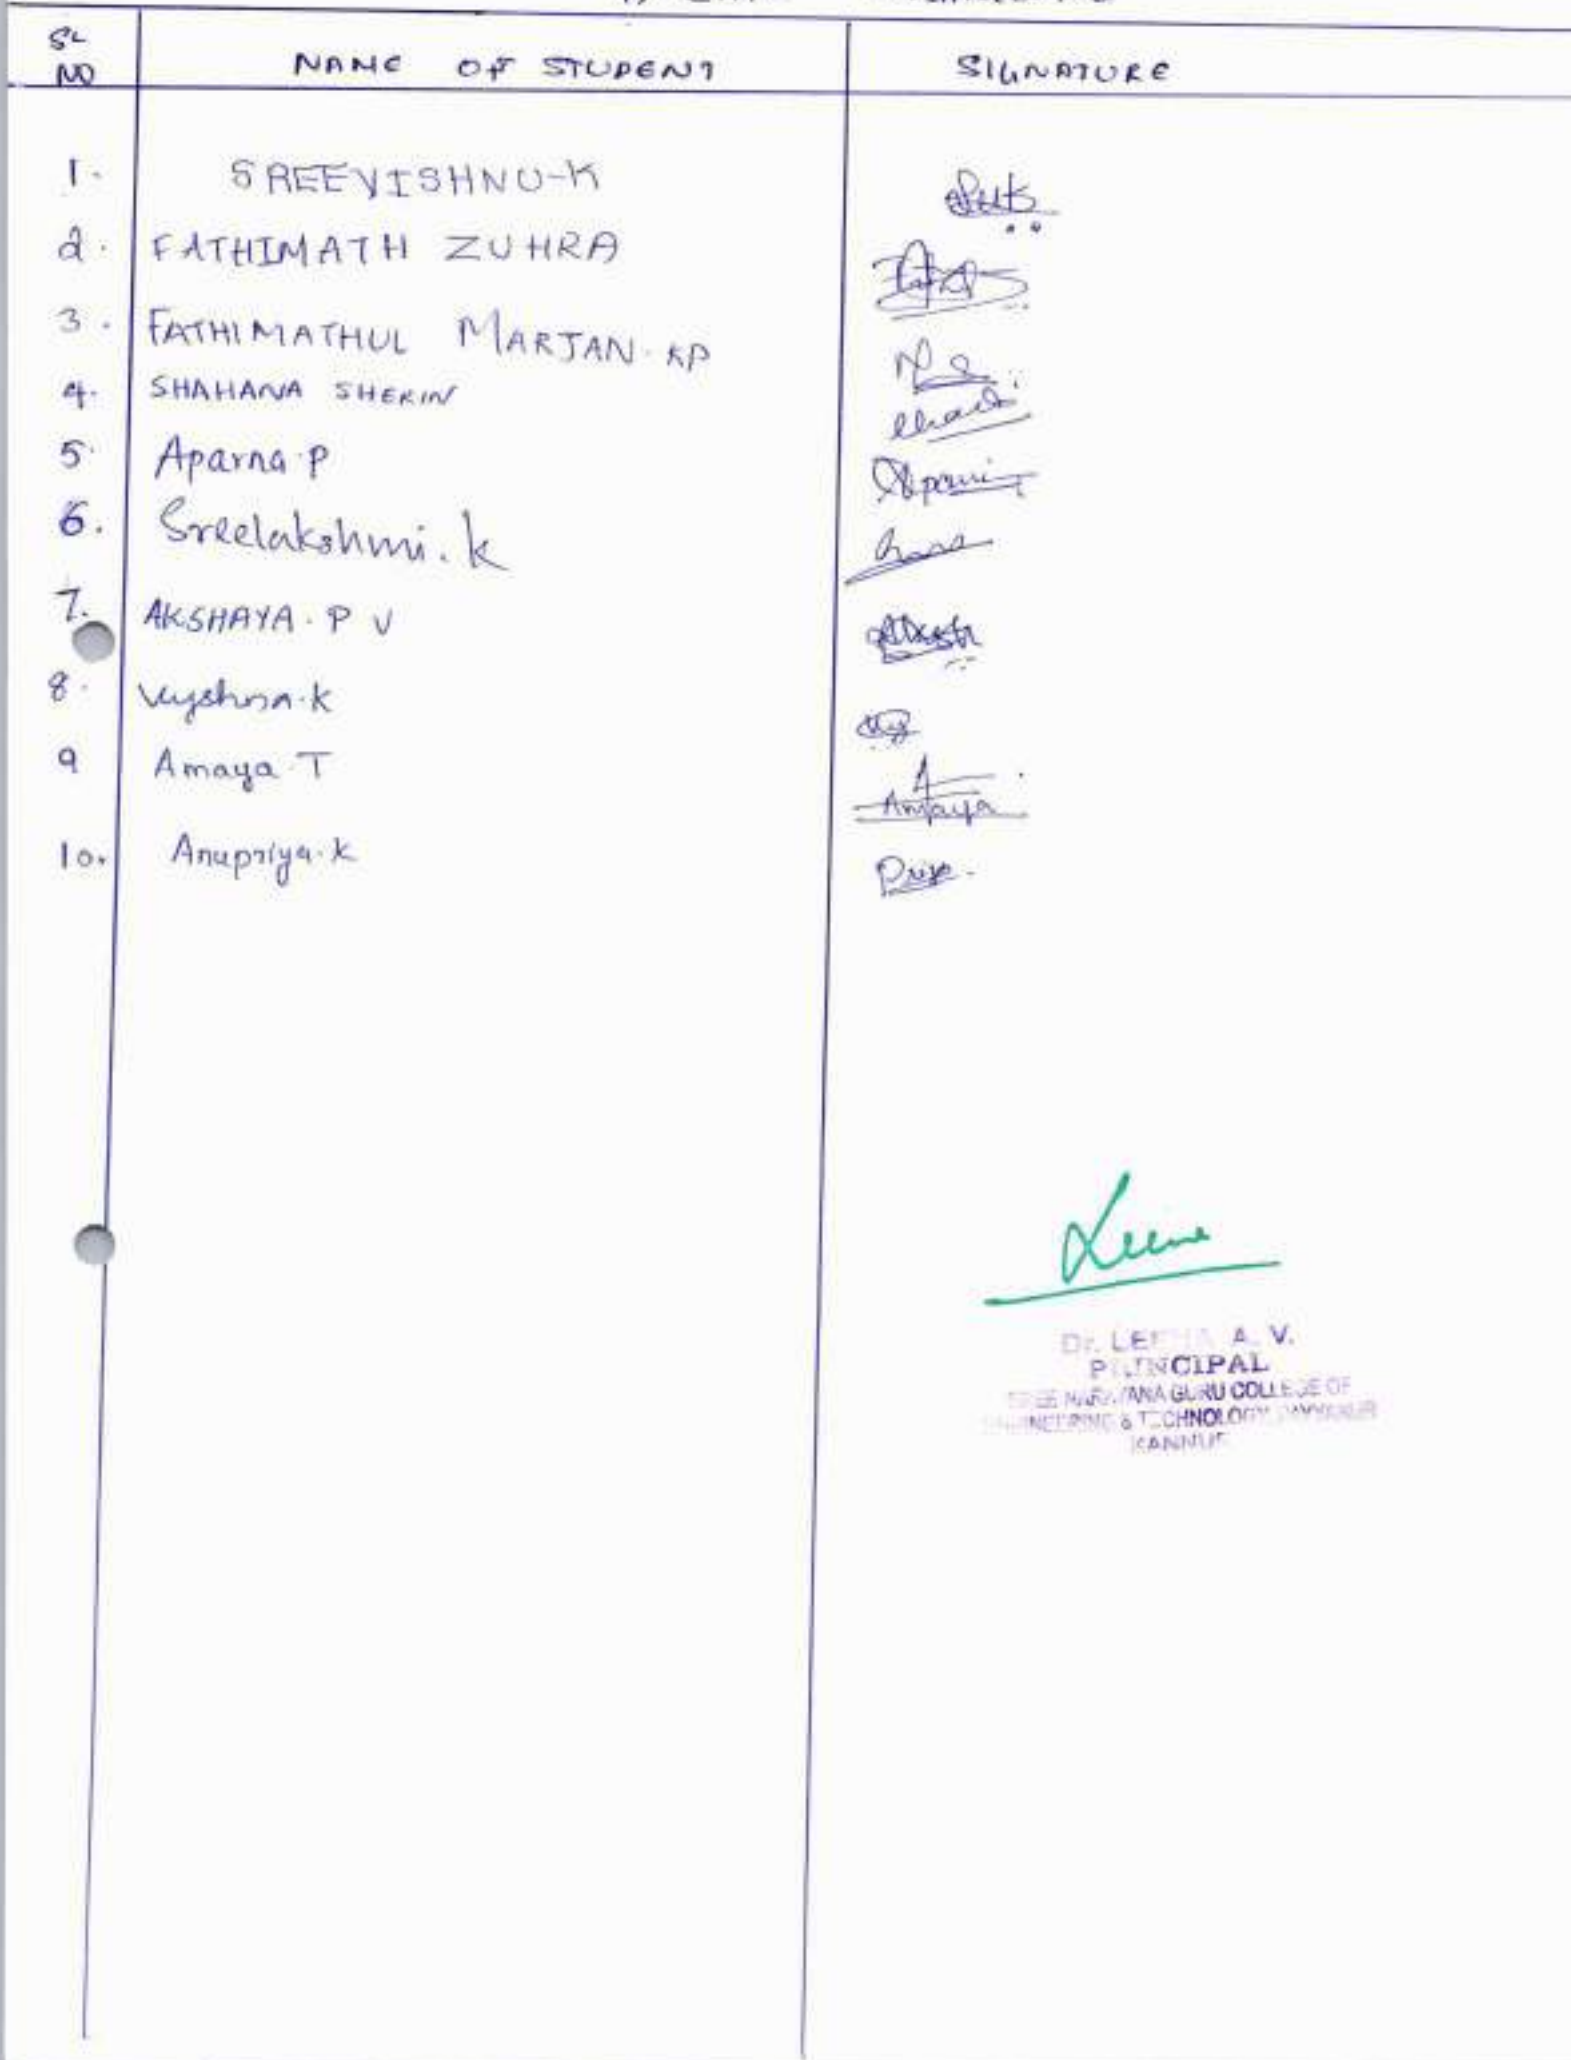 SL NO NAME OF STUDENT SIGNATURE
1. SREEVISHNU-K
2. FATHIMATH ZUHRA
3. FATHIMATHUL MARJAN. KP
4. SHAHANA SHERIN
5. Aparna. P
6. Sreelakshmi. k
7. AKSHAYA. P V
8. Vyshna. K
9 Amaya. T Amaya
10. Anupriya. K Priya.
Dr. A. V.
PRINCIPAL
SREE NARAYANA GURU COLLEGE OF
ENGINEERING & TECHNOLOGY PAYYANUR
KANNUR